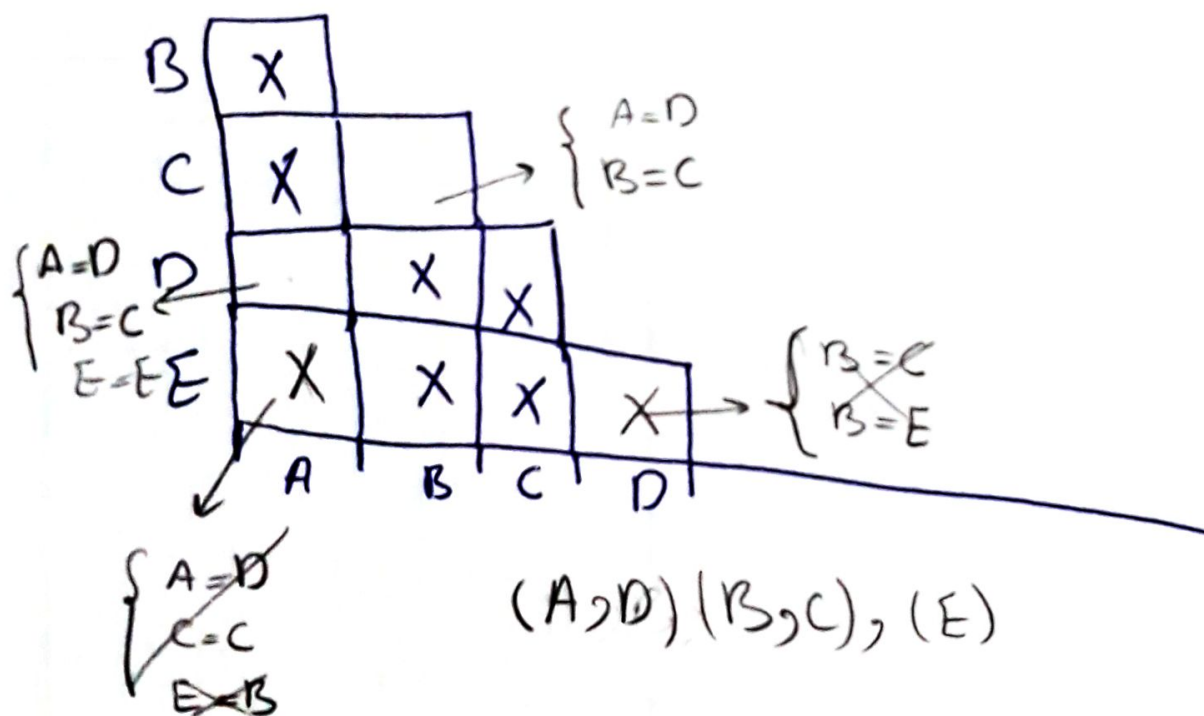 B X
C X
A=D
B=C
A=D
B=C
E=E
D X X
E X X X X
B=C
B=E
A B C D
A=D
C=C
E=B
(A,D) (B,C), (E)